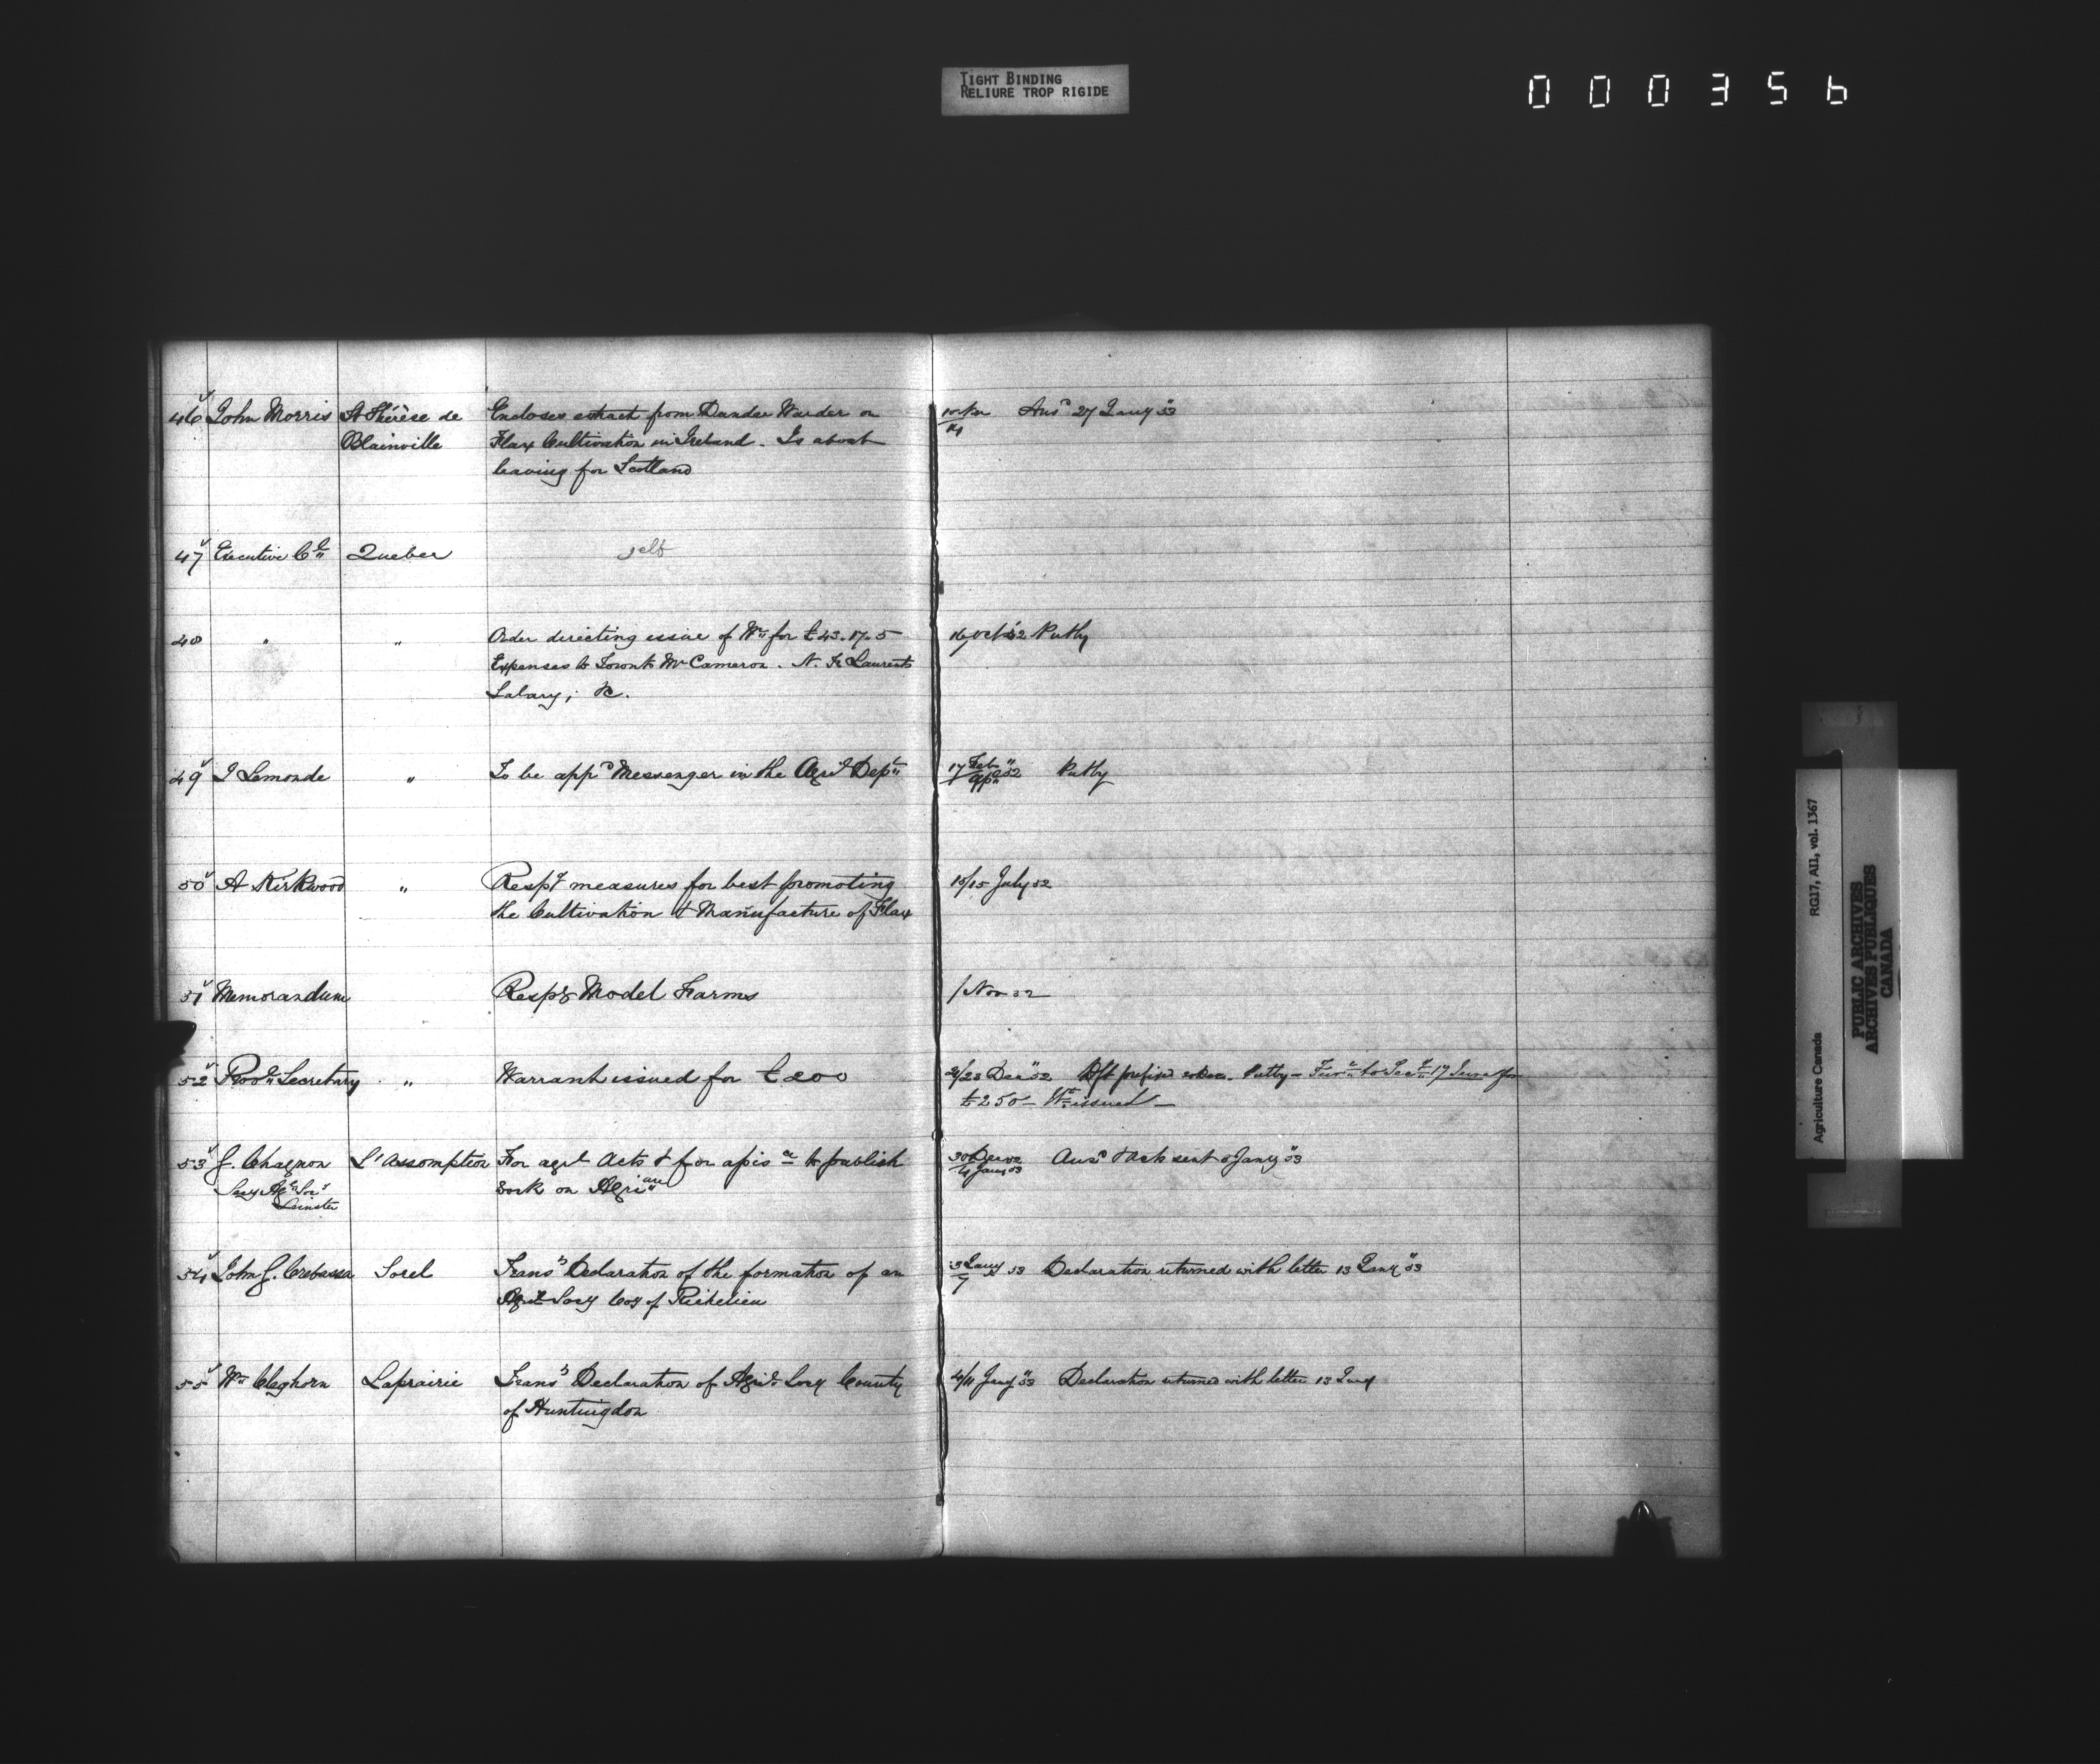 TIGHT BINDING
RELIURE TROP RIGIDE
000356
46 John Morris St Thérèse de Encloses extract from Dundee Warder on Ansd 27 Jany 53
Blainville Flax Cultivation in Ireland. Is about 14
leaving for Scotland
47 Executive Cl Quebec self
48 " " Order directing issue of Wt for £43.17.5 16 Oct 52 Putby
Expenses to Toronto Mr Cameron. N. St Laurents
Salary; &c.
49 J Lemonde " To be appd Messenger in the Agrl Dept 17 Feb 52 Putby
50 A Kirkwood " Respg measures for best promoting 15/15 July 52
the Cultivation & Manufacture of Flax
51 Memorandum Respg Model Farms 1 Nov 52
52 Provl Secretary " Warrant issued for £200 2/23 Decr 52 Putby
£250 - Wt issued -
53 J. Chagnon L'Assomption For agrl Acts & for to publish 30 Dec 52 Ansd & Acts sent 6 Jany 53
Secy Agl Socy work on Agri 4 Jany 53
Leinster
54 John G. Crebassa Sorel Trans Declaration of the formation of an 3 Jany 53 Declaration returned with letter 13 Jany 53
Agrl Socy Coy of Richelieu 7
55 Wm Cleghorn Laprairie Trans Declaration of Agrl Socy County 4/11 Jany 53 Declaration returned with letter 13 Jany
of Huntingdon
Agriculture Canada RG17, AII, vol. 1367
PUBLIC ARCHIVES
ARCHIVES PUBLIQUES
CANADA